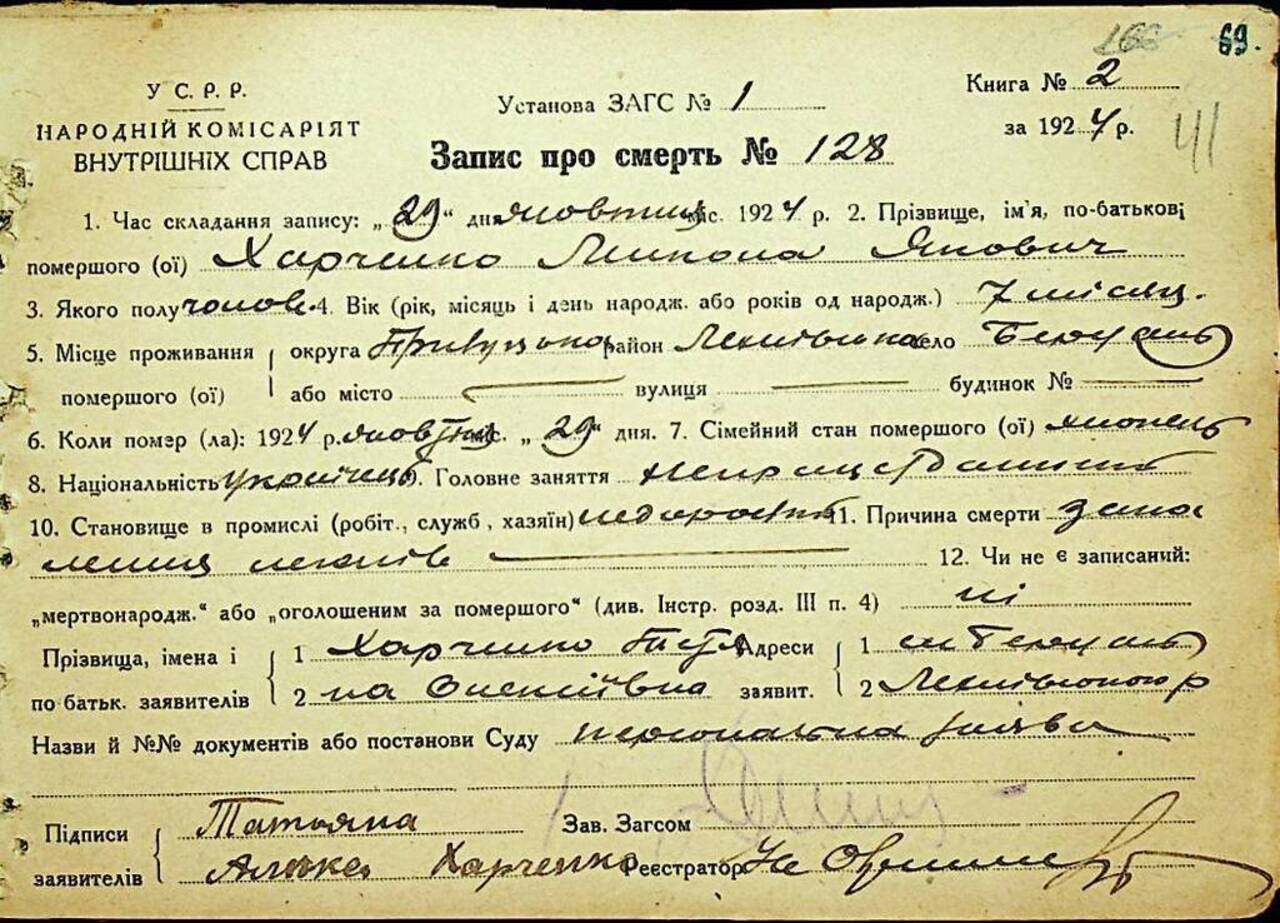 166 69.
У С. Р. Р.
НАРОДНІЙ КОМІСАРІЯТ
ВНУТРІШНІХ СПРАВ
Установа ЗАГС № 1
Книга № 2
за 1924 р.
41
Запис про смерть № 128
1. Час складання запису: „29“ дня жовтня міс. 1924 р. 2. Прізвище, ім'я, по-батькові
помершого (ої) Харченко Микола Якович
3. Якого полу чолов. 4. Вік (рік, місяць і день народж. або років од народж.) 7 місяц.
5. Місце проживання округа Прилуцька район село
помершого (ої) або місто вулиця будинок №
6. Коли помер (ла): 1924 р. жовтня міс. „29“ дня. 7. Сімейний стан помершого (ої) хлопець
8. Національність Українець 9. Головне заняття
10. Становище в промислі (робіт., служб, хазяїн) 11. Причина смерти запа
лення легенів 12. Чи не є записаний:
„мертвонародж.“ або „оголошеним за помершого“ (див. Інстр. розд. III п. 4) ні
Прізвища, імена і 1 Харченко Адреси 1
по батьк. заявителів 2 на Олексіївна заявит. 2
Назви й №№ документів або постанови Суду персональна заява
Підписи Татьяна Зав. Загсом
заявителів Харченко Реєстратор